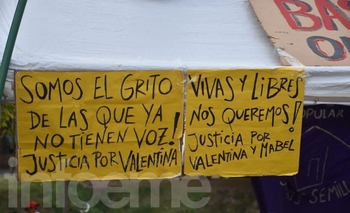 SOMOS EL GRITO
DE LAS QUE YA
NO TIENEN VOZ!
JUSTICIA POR VALENTINA
VIVAS Y LIBRES
NOS QUEREMOS!
JUSTICIA POR
VALENTINA Y MABEL
BAS
POPULAR
SEMILL
infoeme